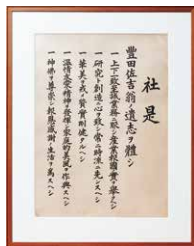 社是
豊田佐吉翁ノ遺志ヲ體シ
一、上下一致至誠業務ニ服シ産業報國ノ實ヲ擧クヘシ
一、研究ト創造ニ心ヲ致シ常ニ時流ニ先ンスヘシ
一、華美ヲ戒メ質實剛健タルヘシ
一、温情友愛ノ精神ヲ發揮シ家庭的美風ヲ作興スヘシ
一、神佛ヲ尊崇シ報恩感謝ノ生活ヲ爲スヘシ